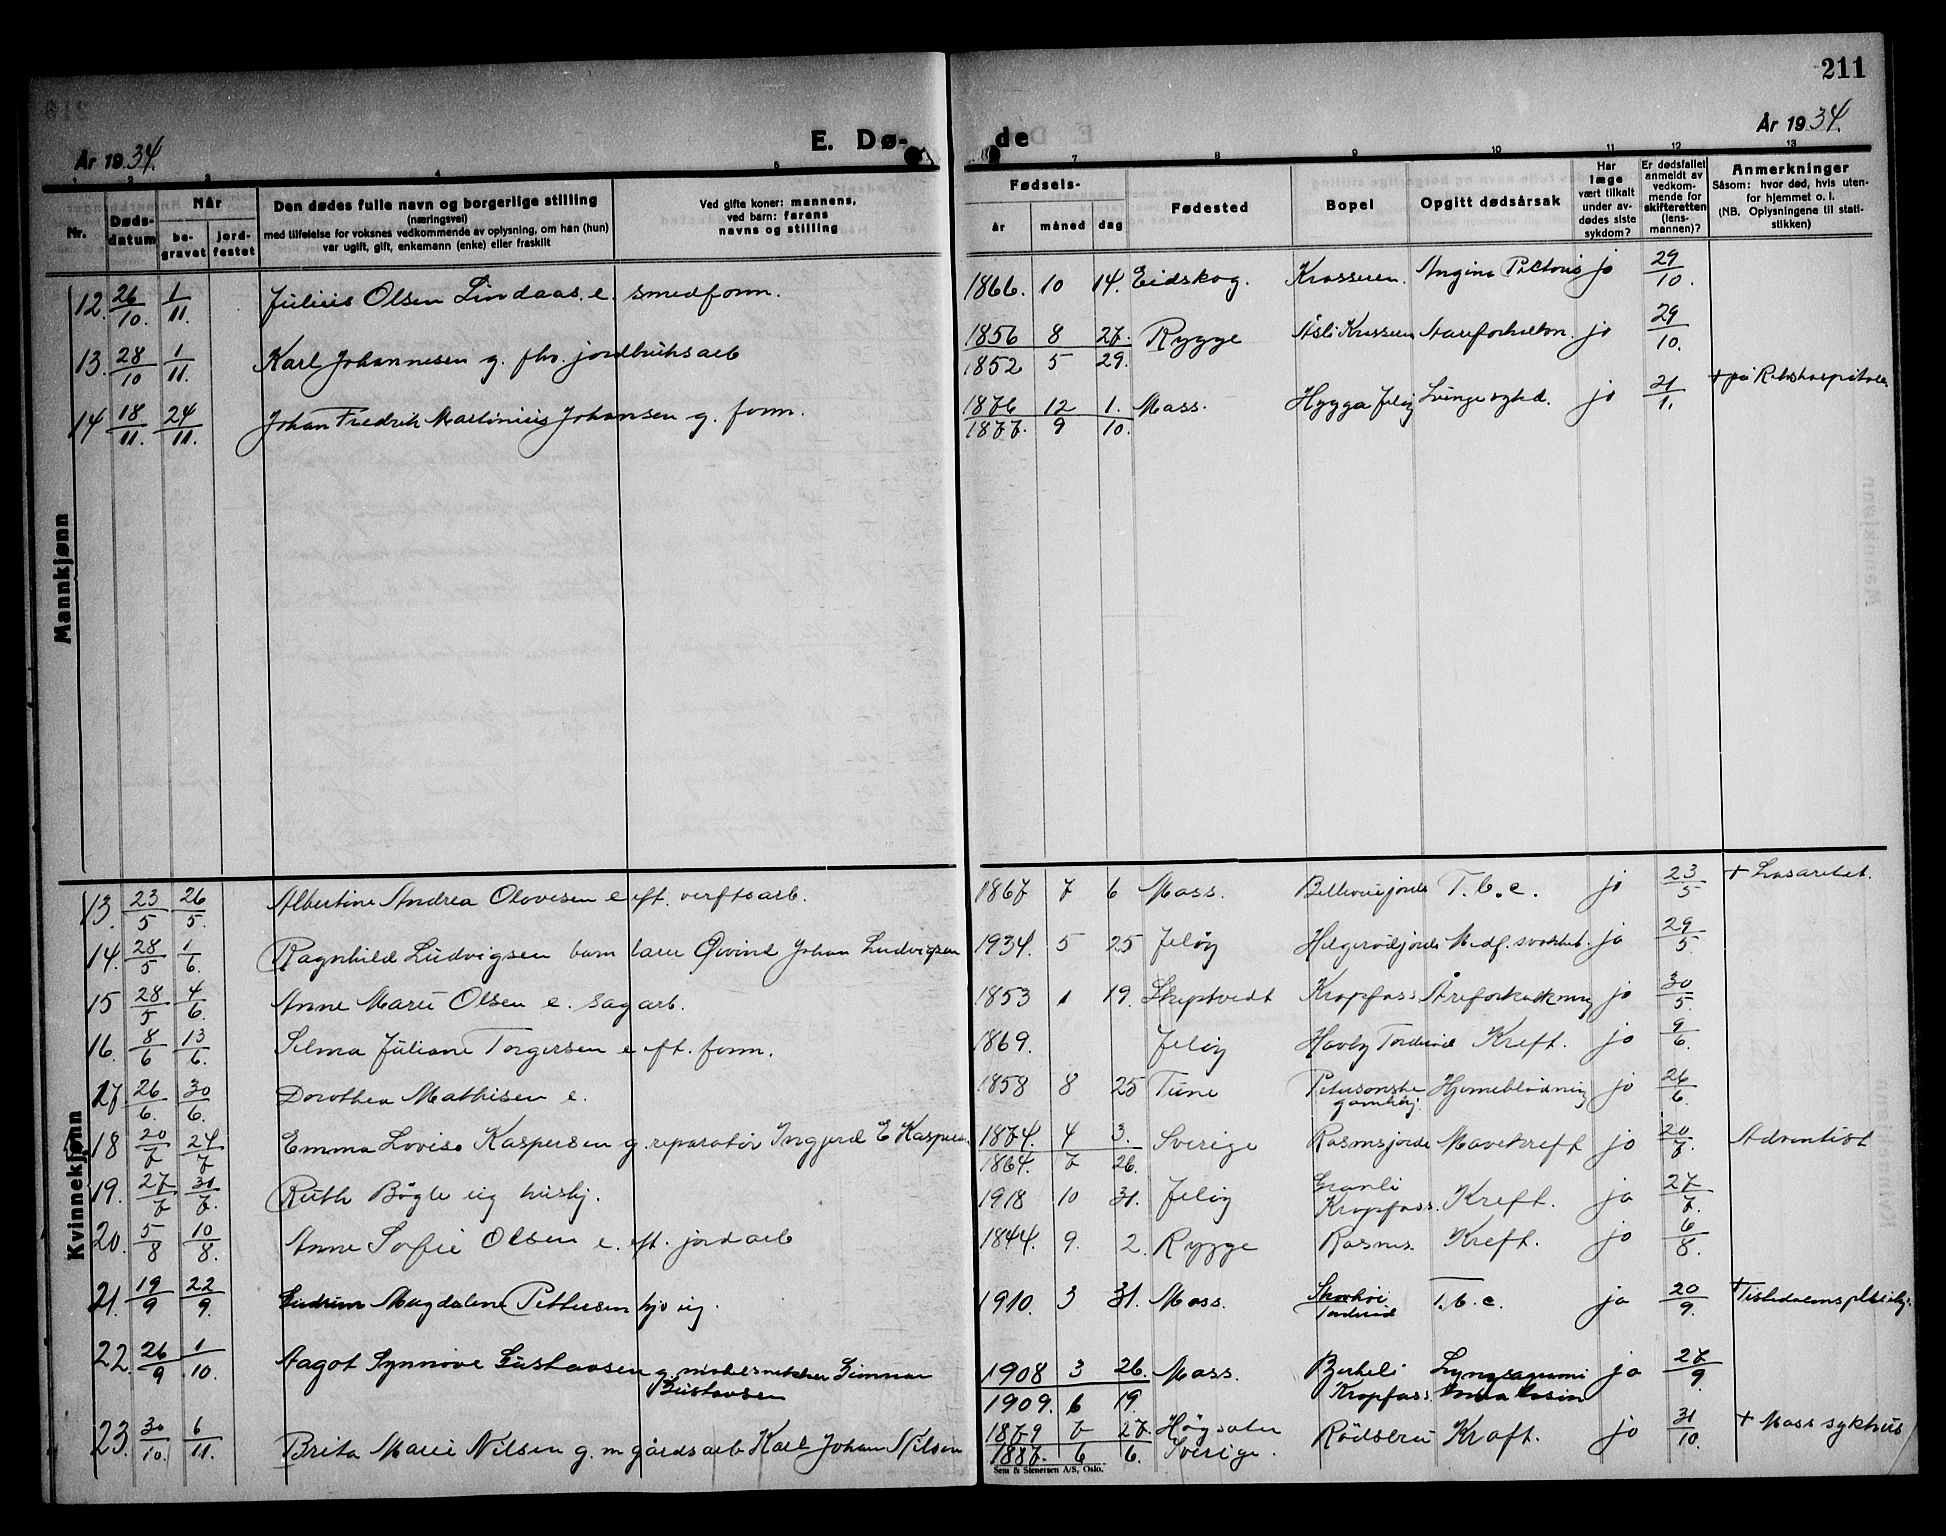 211
År 1934.
E. Dø-
de
År 1934.
1 2 3 4 5 7 8 9 10 11 12 13
Nr.
Døds-
datum
Når
be-
gravet
jord-
festet
Den dødes fulle navn og borgerlige stilling
(næringsvei)
med tilføielse for voksnes vedkommende av oplysning, om han (hun)
var ugift, gift, enkemann (enke) eller fraskilt
Ved gifte koner: mannens,
ved barn: farens
navns og stilling
Fødsels-
år måned dag
Fødested
Bopel
Opgitt dødsårsak
Har
læge
vært tilkalt
under av-
dødes siste
sykdom?
Er dødsfallet
anmeldt av
vedkom-
mende for
skifteretten
(lens-
mannen)?
Anmerkninger
Såsom: hvor død, hvis uten-
for hjemmet o. l.
(NB. Oplysningene til stati-
stikken)
Mannkjønn
12. 26/10. 1/11. Julius Olsen Lindaas. e. smedform. 1866. 10 14. Eidskog. Krosseren. Angina Pectoris jo 29/10.
13. 28/10 1/11. Karl Johannesen g. fhv. jordbruksarb 1856 8 27. Rygge Åsli Krosseren jo 29/10.
1852 5 29.
14 18/11. 24/11. Johan Fredrik Martinius Johansen g. form. 1876 12 1. Moss. Hygga Jeløy Lungesykd. jo 21/1. + på Rikshospitalet
1877. 9 10.
Kvinnekjønn
13. 23/5 26/5. Albertine Andrea Olavesen e eft. verftsarb. 1867 7 6 Moss. T.b.c. jo 23/5 + Lasarettet.
14. 28/5 1/6. Ragnhild Ludvigsen barn Øivind Johan Ludvigsen 1934 5 25 Jeløy Medf. svakhet. ja 29/5
15 28/5 4/6. Anne Marie Olsen e. sagarb. 1853 1 19. Skiptvedt Kropfoss Åreforkalkning jo 30/5.
16. 8/6 13/6. Selma Juliane Torgersen e eft. form. 1869. Jeløy Kreft. jo 9/6.
17. 26/6. 30/6. Dorothea Mathisen e. 1858 8 25 Tune Petersonske
gamlehj. Hjerneblødning jo 26/6.
18 20/7 24/7 Emma Lovise Kaspersen g. reparatør E Kaspersen 1874. 4 3. Sverige Rosnesjorde Mavekreft jo 20/7. Adventist
1864. 7 26.
19. 27/7 31/7. Ruth Bøgle ug husbj. 1918 10 31. Jeløy Granli
Kropfoss. Kreft. ja 27/7.
20. 5/8 10/8. Anne Sofie Olsen e. eft. jordarb 1844. 9. 2. Rygge Rosnes. Kreft. jo 6/8.
21. 19/9 22/9. Gudrun Magdalene Pettersen hjv ug. 1910. 3 31. Moss. T.b.c. ja 20/9. + Tistedalens pleiehj.
22. 26/9 1/10. Aagot Synnøve Gustavsen g. Gunnar
Gustavsen 1908 3 26. Moss. Birkeli
Kropfoss. ja 27/9
1909. 6 19.
23. 30/10. 6/11. Brita Marie Nilsen g. m gårdsarb Karl Johan Nilsen 1879 7 27. Högsäter
Sverige. Rødsbru Kreft. jo 31/10. + Moss sykhus
1887. 6 6.
Sem & Stenersen A/S, Oslo.